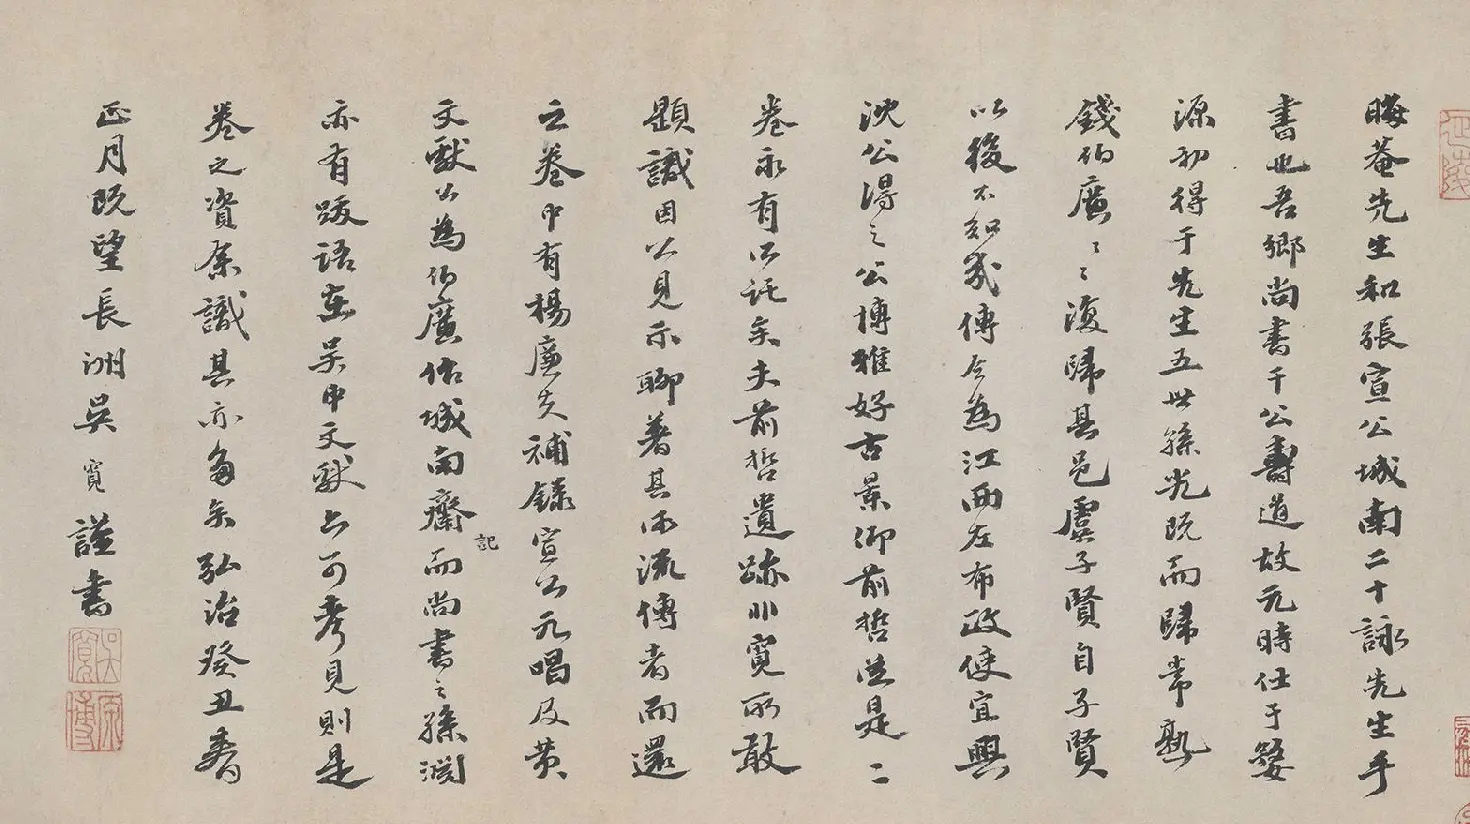 晦菴先生和張宣公城南二十詠先生手
書也吾鄉尚書干公壽道故元時仕于婺
源初得于先生五世孫光既而歸常熟
錢伯廣〻〻復歸其邑虞子賢自子賢
以後不知幾傳今為江西左布政使宜興
沈公得之公博雅好古景仰前哲從是二
卷永有所託矣夫前哲遺跡非寬所敢
題識因以見示聊著其源流傳者而還
之卷中有楊廉夫補錄宣公元唱及黄
文獻公為伯廣作城南齋記而尚書之孫淵
亦有跋語在吴中文獻亦可考見則是
卷之資余識其亦多矣弘治癸丑春
正月既望長洲吳寬謹書
吳寬
原博